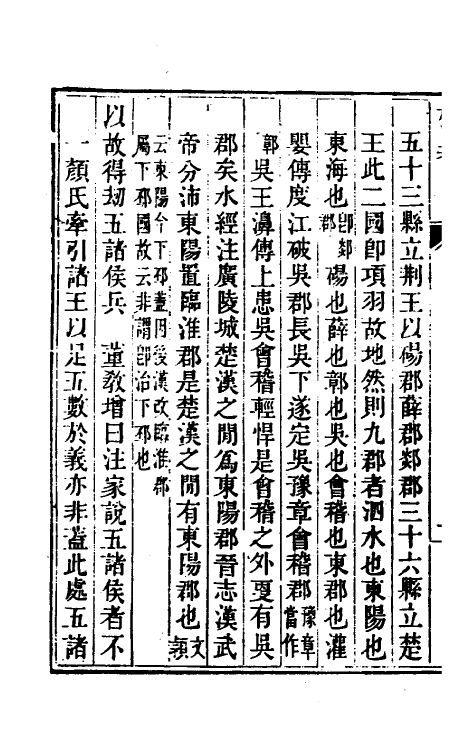 五十三縣立荆王以碭郡薛郡郯郡三十六縣立楚
王此二國卽項羽故地然則九郡者泗水也東陽也
東海也卽郯郡碭也薛也鄣也吳也會稽也東郡也灌
嬰傳度江破吳郡長吳下遂定吳豫章會稽郡豫章當作
鄣吳王濞傳上患吳會稽輕悍是會稽之外更有吳
郡矣水經注廣陵城楚漢之閒爲東陽郡晉志漢武
帝分沛東陽置臨淮郡是楚漢之閒有東陽郡也文穎
云東陽今下邳蓋因後漢改臨淮郡
屬下邳國故云非謂卽治下邳也
以故得劫五諸侯兵 董敎增曰注家說五諸侯者不
一顏氏牽引諸王以足五數於義亦非蓋此處五諸